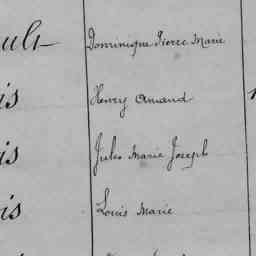 ult Dominique Pierre Marie
is Henry Amand
is Jules Marie Joseph
is Louis Marie